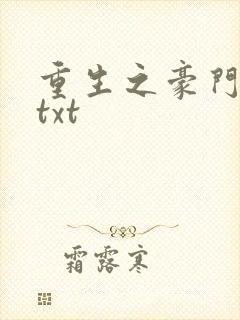 重生之豪門
txt
霜露寒